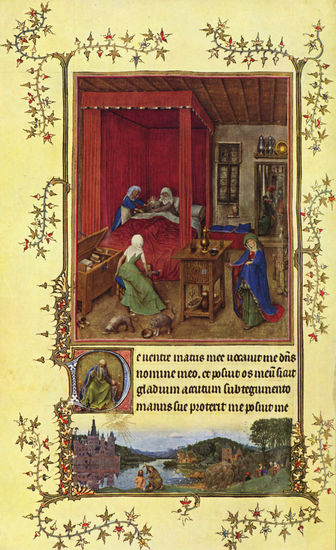 De uentre matris mee uocauit me dñs
nomine meo. et posuit os meũ sicut
gladium acutum sub tegumento
manus sue protexit me posuit me